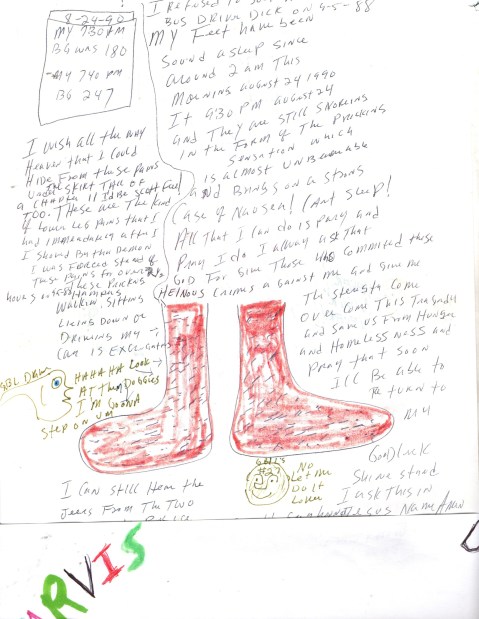 8-24-90
MY 730 PM
BG WAS 180
MY 740 PM
BG 247
I REFUSED TO
BUS DRIVE DICK ON 9-5-88
MY Feet have been
SOUND ASLEEP SINCE
around 2 am This
MORNING AUGUST 24 1990
It 930 PM AUGUST 24
and They are still SNORING
in the Form of The Pricking
Sensation which
is almost UNBEARABLE
and Brings on a strong
Case of Nausea! (Ant Sleep!
All That I can do is pray and
Pray I do I alway ask That
GOD ForGive Those Who Committed These
HEINOUS Crimes against me and Give me
The Strength
Over Come This Tragedy
and Save us From Hunger
and Homelessness and
Pray that Soon
I'll Be able to
Return to
MY
GoodLuck
Shine stand
I ask This in
Jesus Name Amen
I wish all the way
Heaven that I could
HiDe From these Pains
Under The SKirt Tail of
a CHAPTER 11 I'd Be Scott Free
TOO. These are The Kind
of Lower Leg Pains that I
Had immediately after I
I was Forced Stand
These Pains for over
hours
Walkin, Sitting
Living Down or
Driving my
Car is
HAHA HA Look
At Them Doggies
I'M GOONA
Step ON UM
#27
No
Let me
Do It
Lover
I Can still Hear the
Jeers From The Two
ARVIS